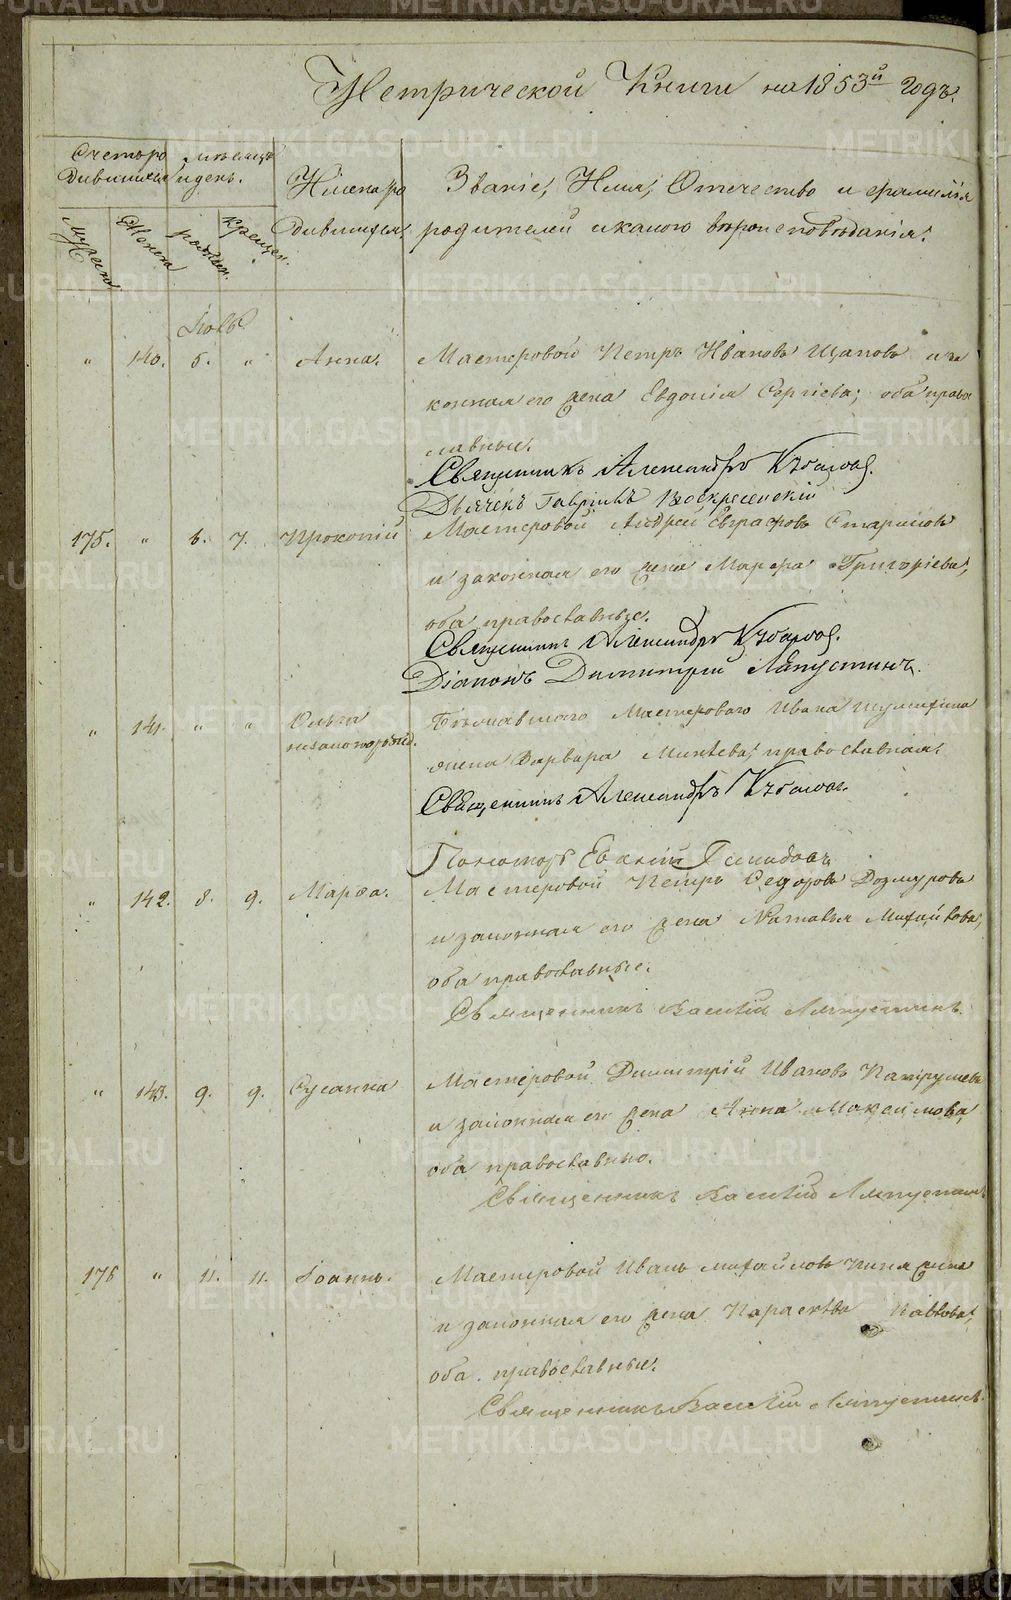 Метрической Книги на 1853й годъ.
Счетъ ро
дившихся
мѣсяцъ
и день.
Мужеска
Женска
рожден.
крещен.
Имена ро
дившихся.
Званіе, Имя, Отечество и фамилія
родителей и какого вѣроисповѣданія.
Іюль
" 140. 6. " Анна. Мастеровой Петръ Ивановъ Щаповъ и за
конная его жена Евдокія Сергіева; оба право
славные.
Священникъ Александръ
Дьячекъ Гавріилъ Воскресенскій
175. " 6. 7. Прокопій Мастеровой Андрей Евграфовъ
и законная его жена Марфа Григоріева,
оба православные.
Священникъ Александръ
Діаконъ Димитрій Ляпустинъ.
" 141. " " Ольга
незаконорожд.
Мастероваго Ивана
жена Варвара православная.
Священникъ Александръ
Пономарь
" 142. 8. 9. Марфа. Мастеровой Петръ Федоровъ Дозмуровъ
и законная его жена Наталья Михайлова,
оба православные.
Священникъ Василій Ляпустинъ.
" 143. 9. 9. Сусанна Мастеровой Димитрій Ивановъ
и законная его жена Анна Максимова,
оба православные.
Священникъ Василій Ляпустинъ
176 " 11. 11. Іоаннъ. Мастеровой Иванъ Михайловъ
и законная его жена Параскева Павлова,
оба православные.
Священникъ Василій Ляпустинъ.
METRIKI.GASO-URAL.RU